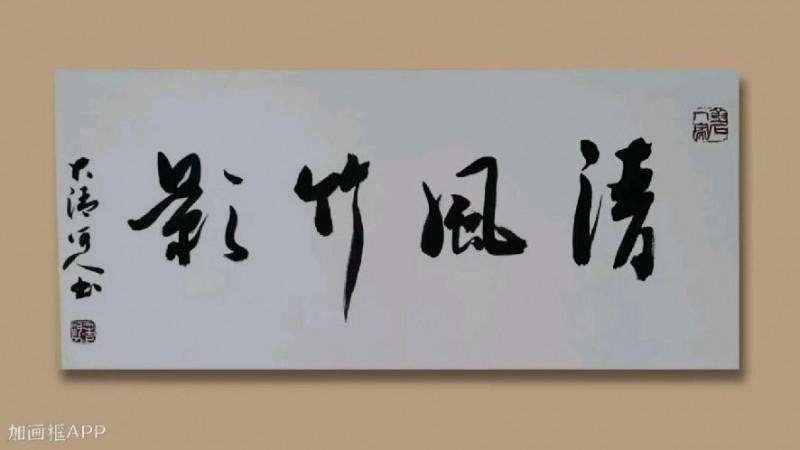 清風竹影
大清河人书
加画框APP